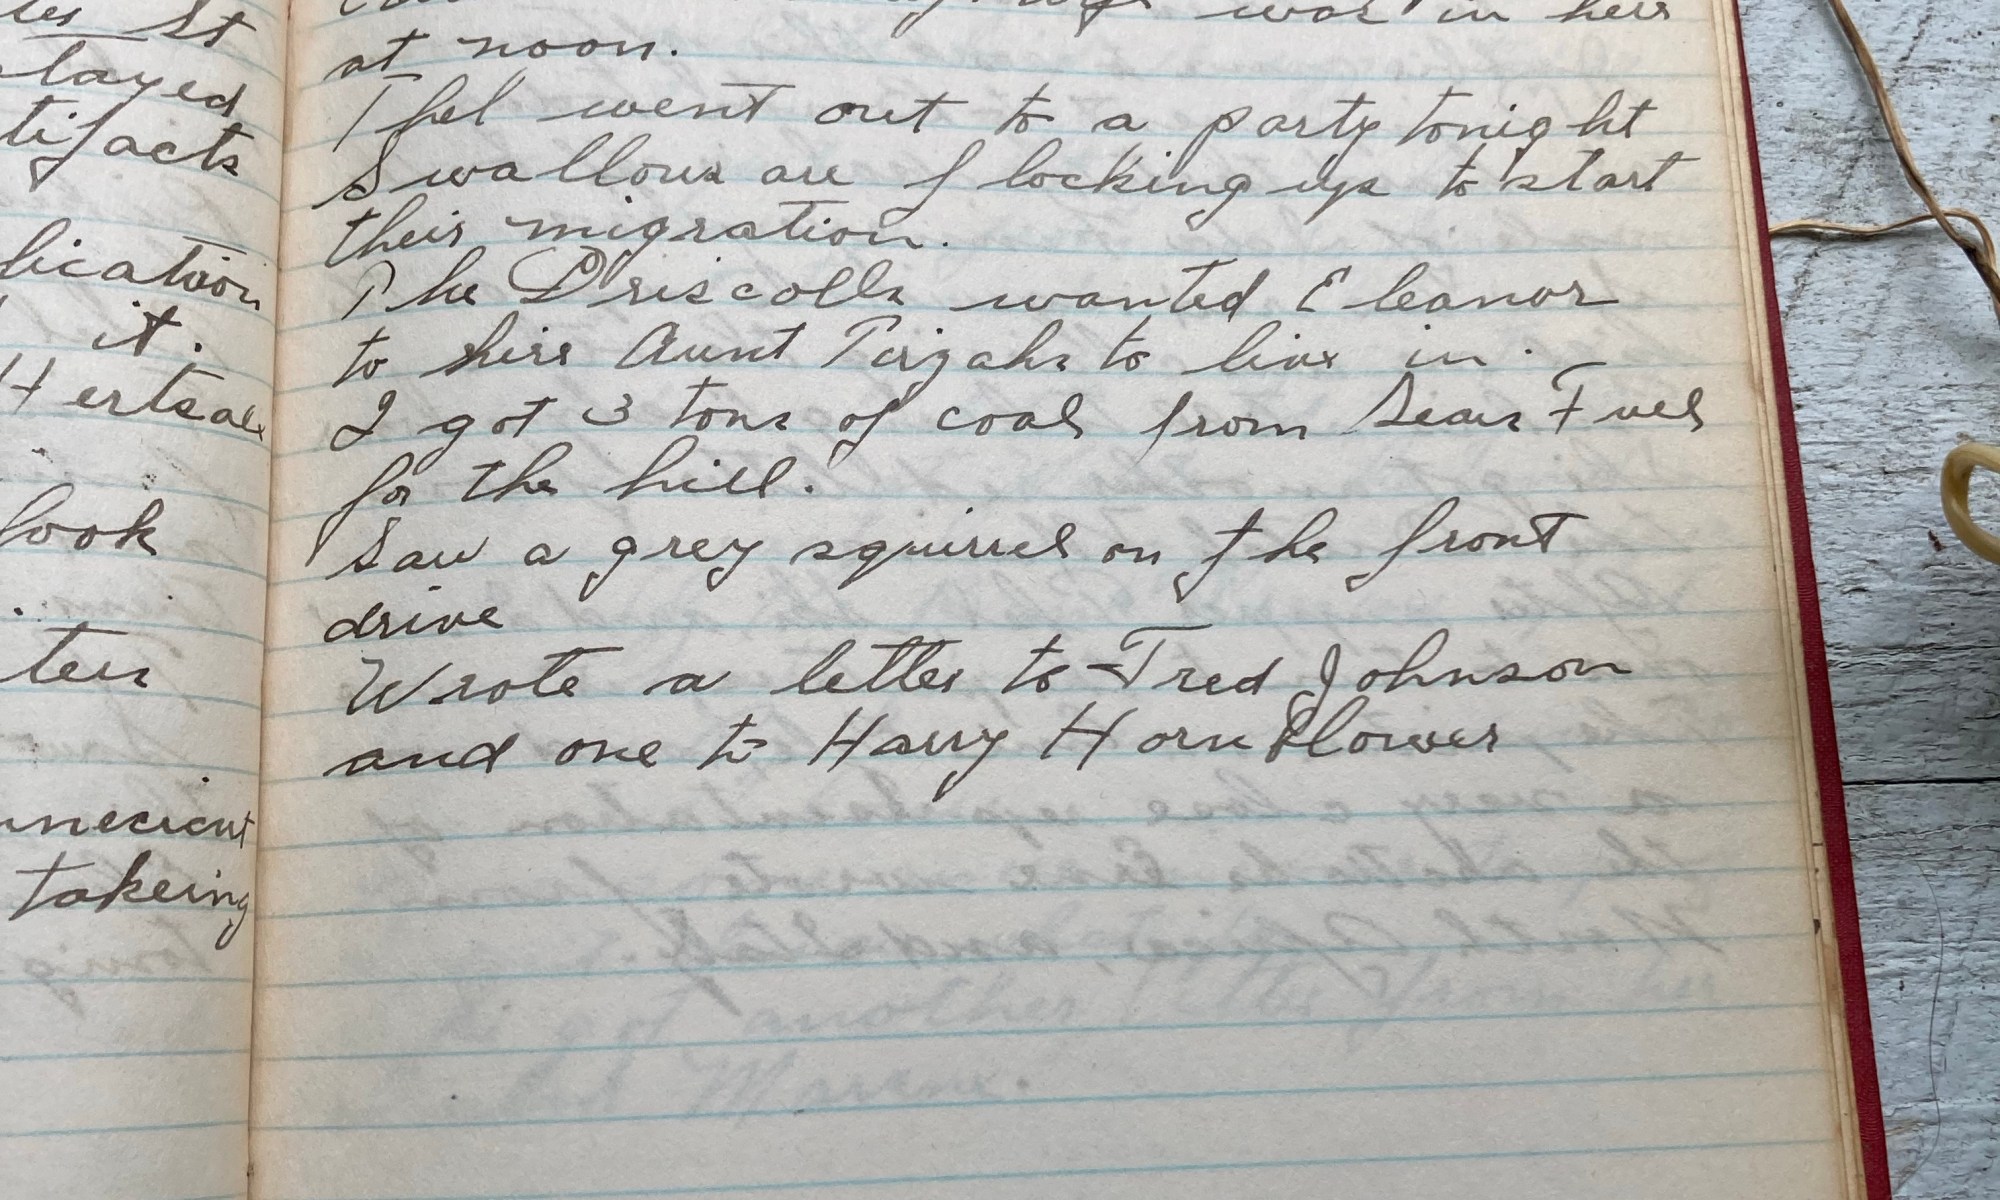 tes St
layed
tifacts
lication
it.
Hertsal
look
ten
necicut
takeing
was in here
at noon.
Thel went out to a party tonight
Swallows are flocking up to start
their migration.
The Driscolls wanted Eleanor
to hire Aunt Tirzahs to live in.
I got 3 tons of coal from Sears Fuel
for the hill.
Saw a grey squirrel on the front
drive
Wrote a letter to Fred Johnson
and one to Harry Hornblower
got another